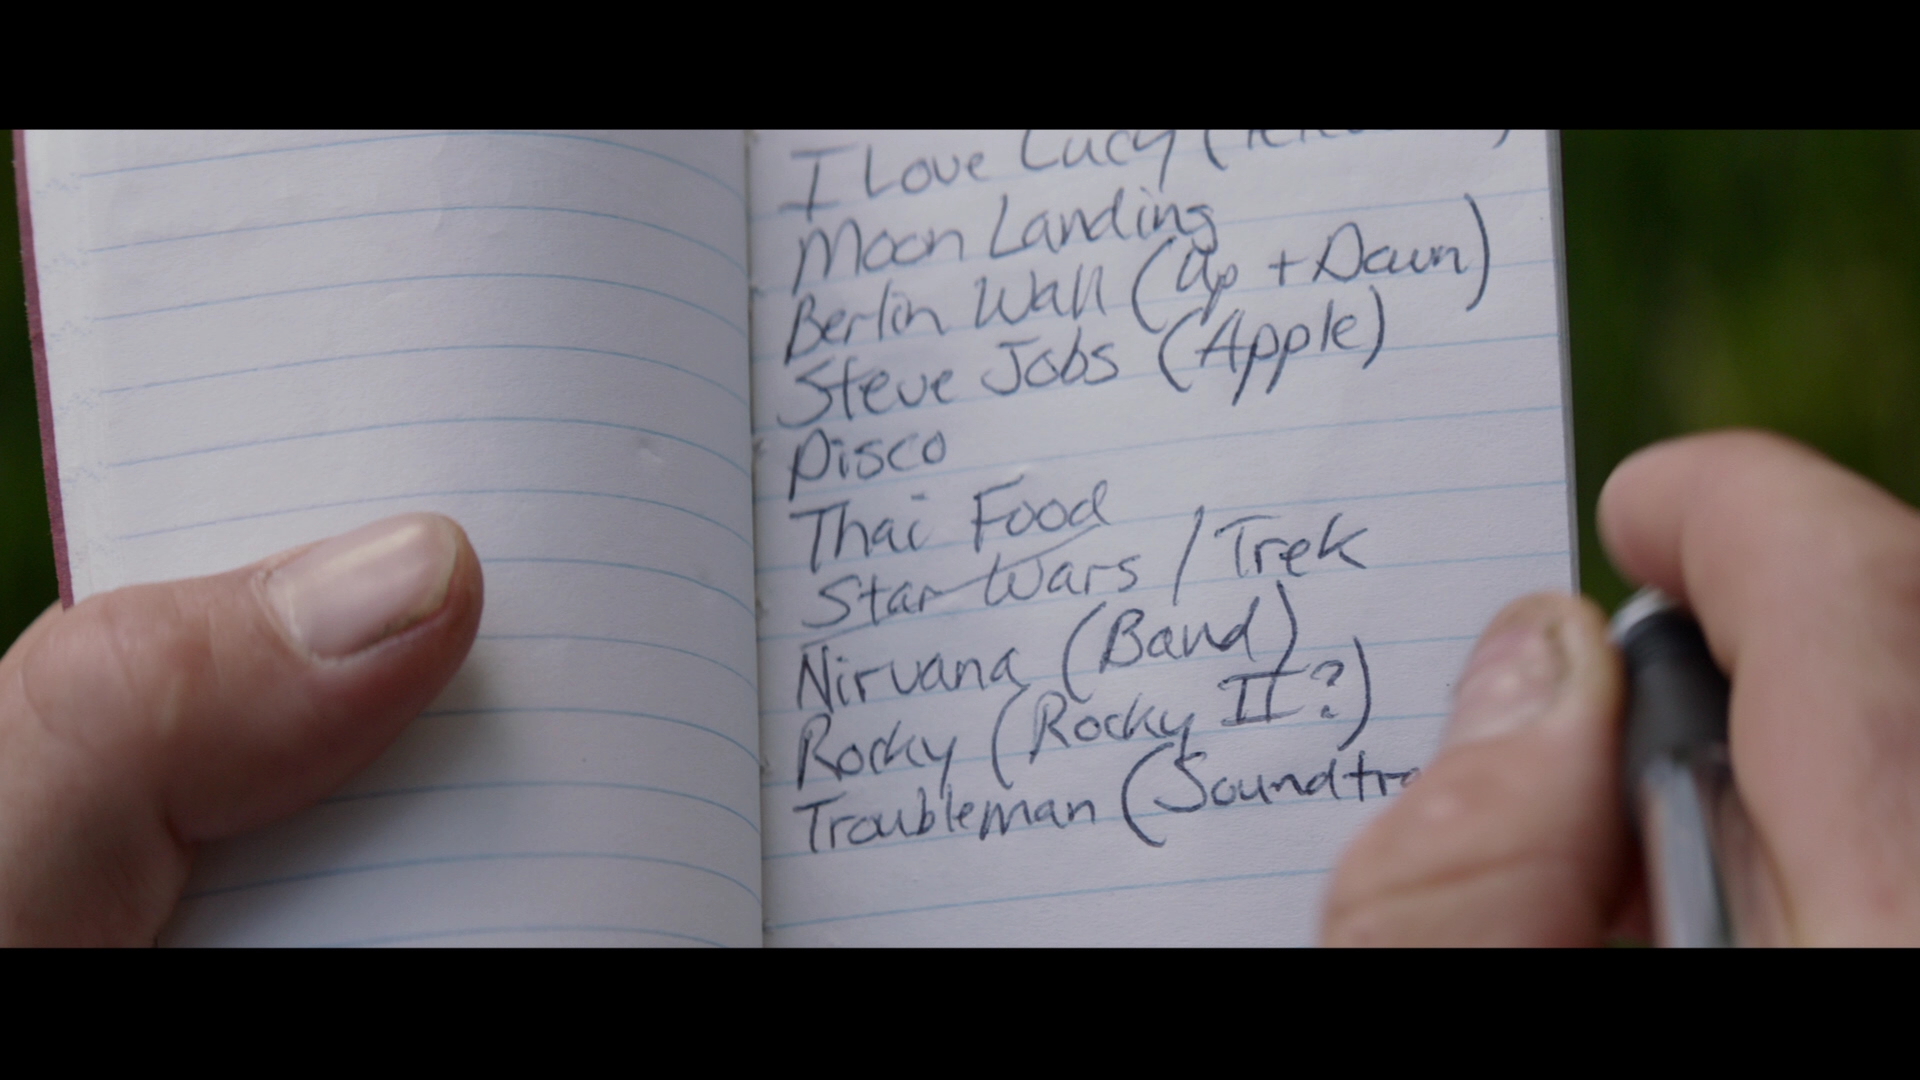 I Love Lucy (
Moon Landing
Berlin Wall (Up + Down)
Steve Jobs (Apple)
Disco
Thai Food
Star Wars / Trek
Nirvana (Band)
Rocky (Rocky II?)
Troubleman (Soundtra